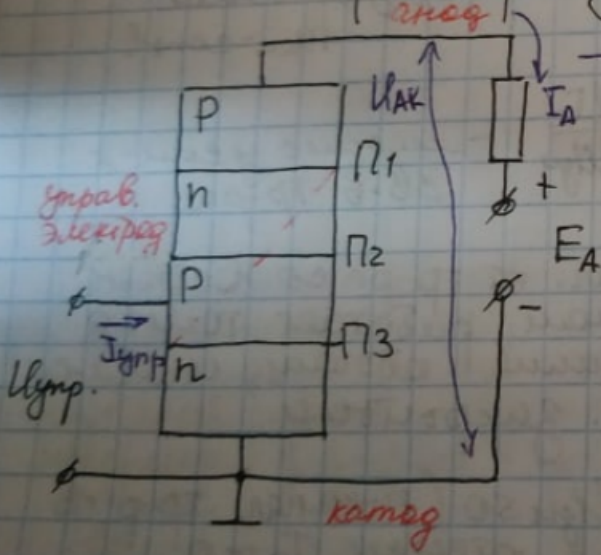 анод
Uак
P
IА
П1
n
управ.
электрод
+
П2
EА
P
-
Iупр
П3
n
Uупр.
катод